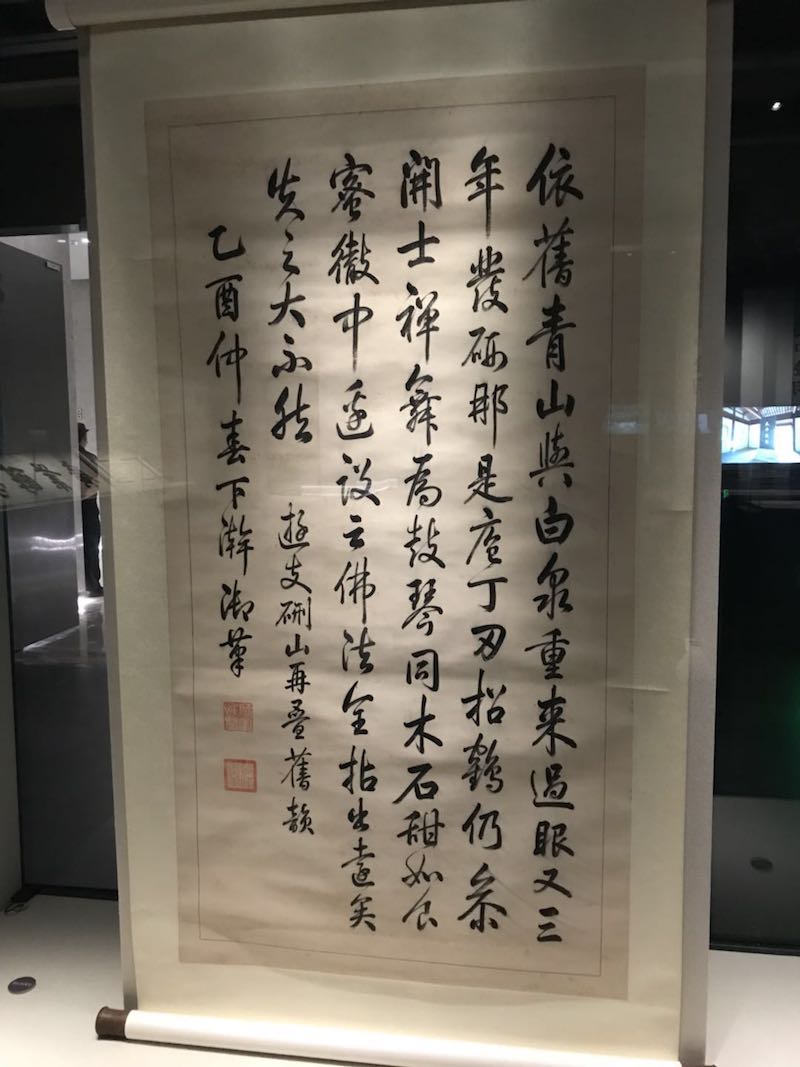 依舊青山與白泉重來過眼又三
年發硎那是庖丁刃招鶴仍參
開士禪舞為鼓琴同木石甜如食
蜜徹中邊設云佛法全拈出遠矣
失之大不然
遊支硎山再疊舊韻
乙酉仲春下澣御筆